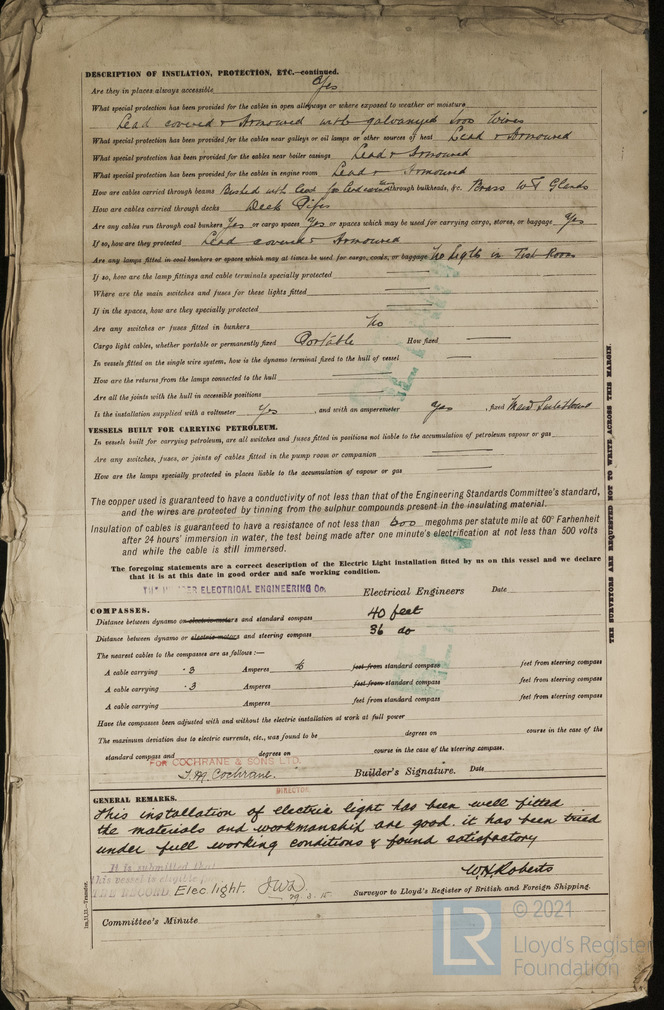 DESCRIPTION OF INSULATION, PROTECTION, ETC.—continued.
Are they in places always accessible Yes
What special protection has been provided for the cables in open alleyways or where exposed to weather or moisture
Lead covered & Armoured with galvanyed iron Wires
What special protection has been provided for the cables near galleys or oil lamps or other sources of heat Lead & Armoured
What special protection has been provided for the cables near boiler casings Lead & Armoured
What special protection has been provided for the cables in engine room Lead & Armoured
How are cables carried through beams Bushed with lead for through bulkheads, &c. Brass W.T Glands
How are cables carried through decks Deck Pipes
Are any cables run through coal bunkers Yes or cargo spaces Yes or spaces which may be used for carrying cargo, stores, or baggage Yes
If so, how are they protected Lead covered & Armoured
Are any lamps fitted in coal bunkers or spaces which may at times be used for cargo, coals, or baggage No Ligts in Fish Room
If so, how are the lamp fittings and cable terminals specially protected
Where are the main switches and fuses for these lights fitted
If in the spaces, how are they specially protected
Are any switches or fuses fitted in bunkers No
Cargo light cables, whether portable or permanently fixed Portable How fixed
In vessels fitted on the single wire system, how is the dynamo terminal fixed to the hull of vessel
How are the returns from the lamps connected to the hull
Are all the joints with the hull in accessible positions
Is the installation supplied with a voltmeter Yes, and with an amperemeter Yes, fixed Main Switchboard
VESSELS BUILT FOR CARRYING PETROLEUM.
In vessels built for carrying petroleum, are all switches and fuses fitted in positions not liable to the accumulation of petroleum vapour or gas
Are any switches, fuses, or joints of cables fitted in the pump room or companion
How are the lamps specially protected in places liable to the accumulation of vapour or gas
The copper used is guaranteed to have a conductivity of not less than that of the Engineering Standards Committee's standard,
and the wires are protected by tinning from the sulphur compounds present in the insulating material.
Insulation of cables is guaranteed to have a resistance of not less than 600 megohms per statute mile at 60° Farhenheit
after 24 hours' immersion in water, the test being made after one minute's electrification at not less than 500 volts
and while the cable is still immersed.
The foregoing statements are a correct description of the Electric Light installation fitted by us on this vessel and we declare
that it is at this date in good order and safe working condition.
ELECTRICAL ENGINEERING Co. Electrical Engineers Date
COMPASSES.
Distance between dynamo or electric motors and standard compass 40 feet
Distance between dynamo or electric motors and steering compass 36 do
The nearest cables to the compasses are as follows:—
A cable carrying .3 Amperes 6 feet from standard compass feet from steering compass
A cable carrying .3 Amperes feet from standard compass feet from steering compass
A cable carrying Amperes feet from standard compass feet from steering compass
Have the compasses been adjusted with and without the electric installation at work at full power
The maximum deviation due to electric currents, etc., was found to be degrees on course in the case of the
standard compass and degrees on course in the case of the steering compass.
FOR COCHRANE & SONS LTD.
T.M. Cochrane. Builder's Signature. Date
DIRECTOR
GENERAL REMARKS.
This installation of electric light has been well fitted
the materials and workmanship are good. it has been tried
under full working conditions & found satisfactory
W.H. Roberts
Surveyor to Lloyd's Register of British and Foreign Shipping.
It is submitted that
this vessel is eligible for
THE RECORD Elec light. JWD 29.3.15
Committee's Minute
THE SURVEYORS ARE REQUESTED NOT TO WRITE ACROSS THIS MARGIN.
LR
© 2021
Lloyd's Register
Foundation